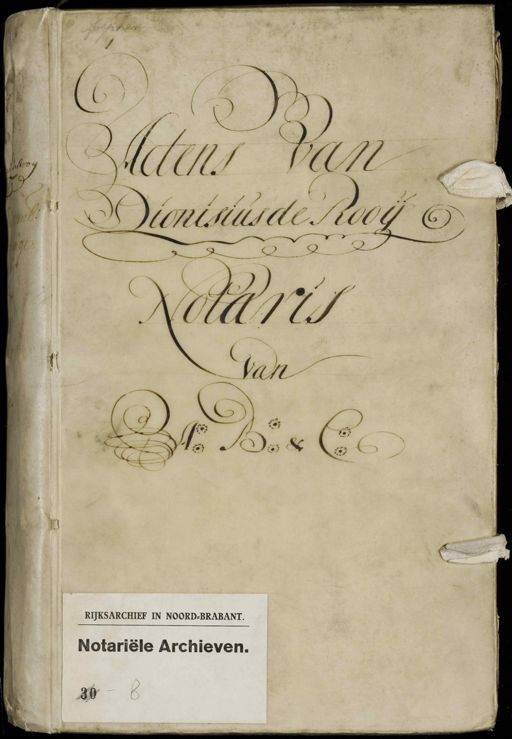 Actens Van
Dionisius de Rooÿ
Notaris
Van
A: B: & C:
RIJKSARCHIEF IN NOORD-BRABANT.
Notariële Archieven.
30 - 8